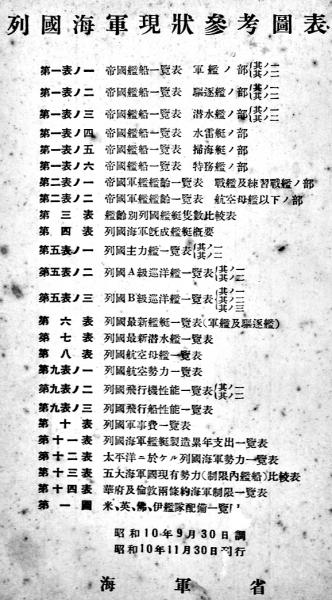 列國海軍現狀參考圖表
第一表ノ一 帝國艦船一覽表 軍艦ノ部{其ノ一 其ノ二
第一表ノ二 帝國艦船一覽表 驅逐艦ノ部{其ノ一 其ノ二
第一表ノ三 帝國艦船一覽表 潜水艦ノ部{其ノ一 其ノ二
第一表ノ四 帝國艦船一覽表 水雷艇ノ部
第一表ノ五 帝國艦船一覽表 掃海艇ノ部
第一表ノ六 帝國艦船一覽表 特務艦ノ部
第二表ノ一 帝國軍艦艦齡一覽表 戰艦及練習戰艦ノ部
第二表ノ二 帝國軍艦艦齡一覽表 航空母艦以下ノ部
第三表 艦齡別列國艦艇隻數比較表
第四表 列國海軍旣成艦艇概要
第五表ノ一 列國主力艦一覽表{其ノ一 其ノ二
第五表ノ二 列國A級巡洋艦一覽表{其ノ一 其ノ二
第五表ノ三 列國B級巡洋艦一覽表{其ノ一 其ノ二 其ノ三
第六表 列國最新艦艇一覽表(軍艦及驅逐艦)
第七表 列國最新潜水艦一覽表
第八表 列國航空母艦一覽表
第九表ノ一 列國航空勢力一覽表
第九表ノ二 列國飛行機性能一覽表{其ノ一 其ノ二
第九表ノ三 列國飛行船性能一覽表
第十表 列國軍事費一覽表
第十一表 列國海軍艦艇製造累年支出一覽表
第十二表 太平洋ニ於ケル列國海軍勢力一覽表
第十三表 五大海軍國現有勢力(制限內艦船)比較表
第十四表 華府及倫敦兩條約海軍制限一覽表
第一圖 米、英、佛、伊艦隊配備一覽
昭和10年9月30日調
昭和10年11月30日刊行
海軍省